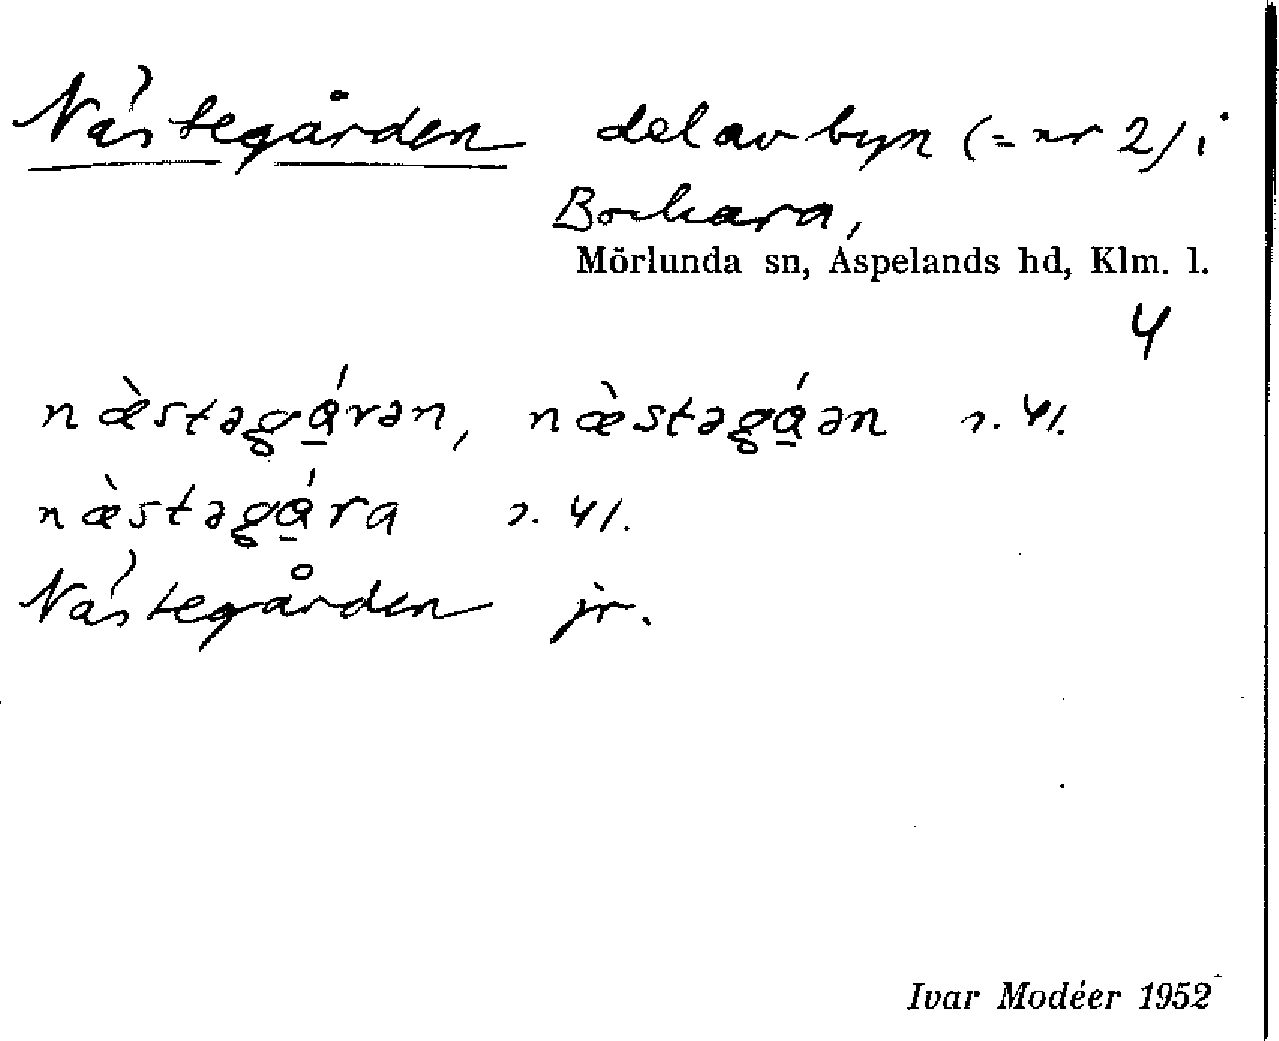 Nästegården del av byn (= nr 2) i
Bockara,
Mörlunda sn, Aspelands hd, Klm. l.
4
næ̀stəgá̱rən, næ̀stəgá̱ən 2. 41.
næ̀stəgá̱ra 2. 41.
Nästegården jr.
Ivar Modéer 1952